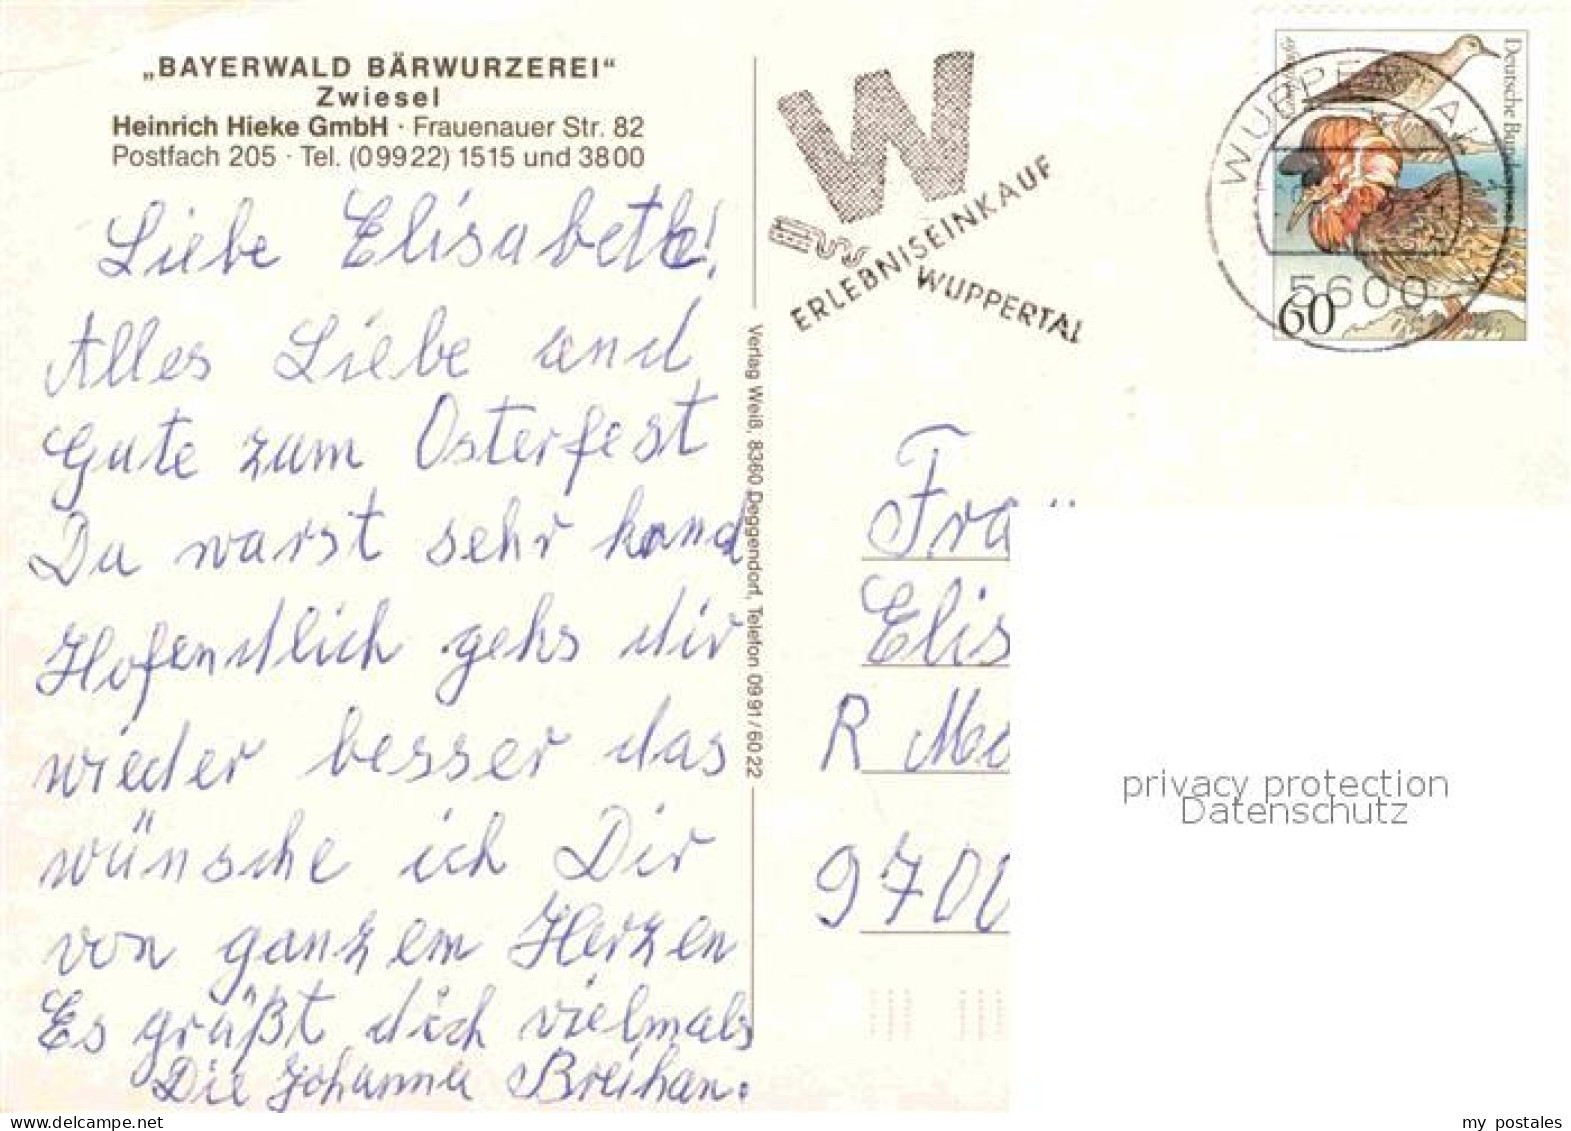 „BAYERWALD BÄRWURZEREI“
Zwiesel
Heinrich Hieke GmbH · Frauenauer Str. 82
Postfach 205 · Tel. (09922) 1515 und 3800
Liebe Elisabeth!
Alles Liebe und
Gute zum Osterfest
Du warst sehr krank
Hofendlich gehs dir
wieder besser das
wünsche ich Dir
von ganzem Herzen
Es grüßt dich vielmals
Die Johanna Breihan.
Verlag Weiß, 8360 Deggendorf, Telefon 0991/6022
W
ERLEBNISEINKAUF
WUPPERTAL
Deutsche Bund
60
WUPPERTAL
5600
Frä
Elis
R Mo
9700
privacy protection
Datenschutz
delcampe.net
my_postales